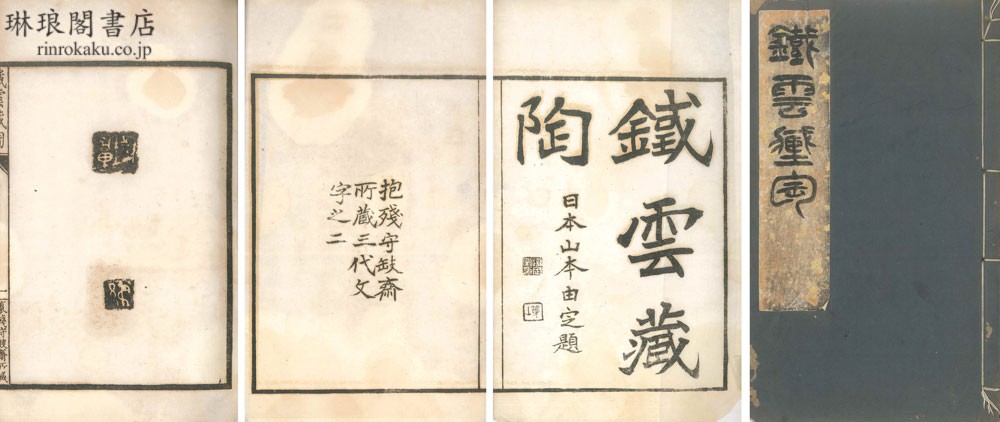 琳琅閣書店
rinrokaku.co.jp
鐵雲藏
陶
日本山本由定題
抱殘守缺齋
所藏三代文
字之二
鐵雲藏陶
抱殘守缺齋所藏